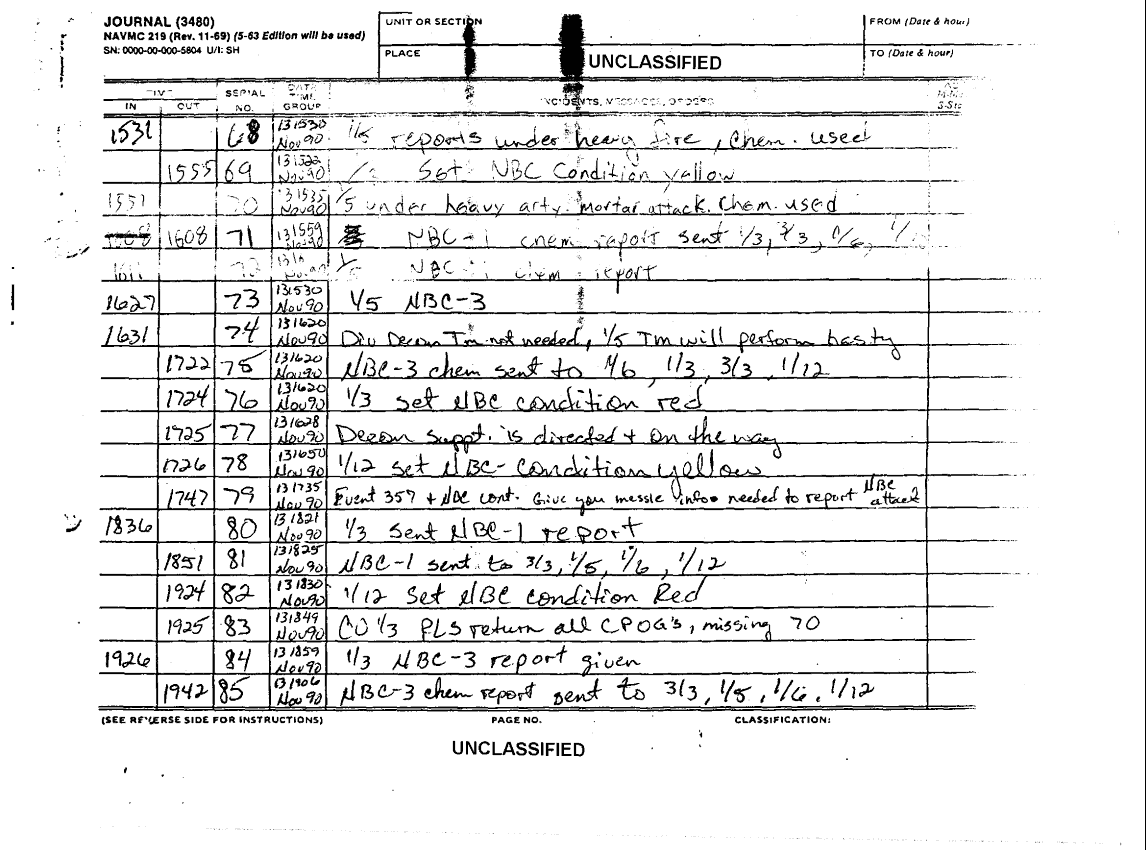 JOURNAL (3480)
NAVMC 219 (Rev. 11-69) (5-63 Edition will be used)
SN: 0000-00-000-5804 U/I: SH
UNIT OR SECTION
PLACE
UNCLASSIFIED
FROM (Date & hour)
TO (Date & hour)
IN OUT SERIAL NO. DATE TIME GROUP INCIDENTS, MESSAGES, ORDERS
1531 68 131530 Nov 90 reports under heavy fire, Chem. used
1555 69 Nov 90 Set NBC Condition yellow
1551 70 131535 Nov 90 1/5 under heavy arty. mortar attack. Chem. used
1608 71 131559 Nov 90 NBC-1 chem report sent 1/3, 3/3, 1/6,
72 NBC-1 chem report
1627 73 131530 Nov 90 1/5 NBC-3
1631 74 131620 Nov 90 Div Decon Tm not needed, 1/5 TM will perform hasty
1722 75 131620 Nov 90 NBC-3 chem sent to 1/6, 1/3, 3/3, 1/12
1724 76 131620 Nov 90 1/3 set NBC condition red
1725 77 131628 Nov 90 Decon suppt. is directed + on the way
1726 78 131650 Nov 90 1/12 set NBC-condition yellow
1747 79 131735 Nov 90 Event 357 + NBC cont. Give you messie info needed to report NBC attack
1836 80 131821 Nov 90 1/3 sent NBC-1 report
1851 81 131825 Nov 90 NBC-1 sent to 3/3, 1/5, 1/6, 1/12
1924 82 131830 Nov 90 1/12 Set NBC condition Red
1925 83 131849 Nov 90 CO 1/3 PLS return all CPOG's, missing 70
1926 84 131859 Nov 90 1/3 NBC-3 report given
1942 85 131906 Nov 90 NBC-3 chem report sent to 3/3, 1/5, 1/6, 1/12
(SEE REVERSE SIDE FOR INSTRUCTIONS) PAGE NO. CLASSIFICATION:
UNCLASSIFIED